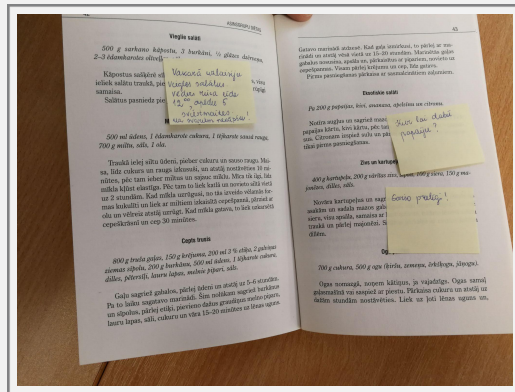 42
KONOGRUPU DIĒTAS
Vieglie salāti
500 g sarkano kāpostu, 3 burkāni, ½ glāzes dzērveņu,
2–3 ēdamkarotes olīveļļas
Kāpostus sašķērē
ieliek salātu traukā, pie
samaisa.
Salātus pasniedz pie
Vakarā
Vieglos salātus
500 ml ūdens, 1 ēdamkarote cukura, 1 tējkarote sausā rauga,
700 g miltu, sāls, 1 ola.
Traukā ielej siltu ūdeni, pieber cukuru un sauso raugu. Mai-
sa, līdz cukurs un raugs izkusuši, un atstāj nostāvēties 10 mi-
nūtes, pēc tam ieber miltus un sajauc mīklu. Mīca tik ilgi, līdz
mīkla kļūst elastīga. Pēc tam to liek katlā un novieto siltā vietā
uz 2 stundām. Kad mīkla uzrūgusi, no tās izveido vēlamās for-
mas kukulīti un liek ar miltiem izkaisītā cepešpannā, pārziež ar
olu un vēlreiz atstāj uzrūgt. Kad mīkla gatava, to liek sakarsētā
cepeškrāsnī un cep 30 minūtes.
Cepts trusis
800 g truša gaļas, 150 g krējuma, 200 ml 3 % etiķa, 2 galviņas
ziemas sīpolu, 200 g burkānu, 500 ml ūdens, 1 tējkarote cukura,
dilles, pētersīļi, lauru lapas, melnie pipari, sāls.
Gaļu sagriež gabalos, pārlej ūdeni un atstāj uz 5–6 stundām.
Pa to laiku sagatavo marinādi. Šim nolūkam sagriež burkānus
un sīpolus, pārlej etiķi, pievieno dažus graudiņus melno piparu,
lauru lapas, sāli, cukuru un vāra 15–20 minūtes uz lēnas uguns.
43
Gatavo marinādi atdzesē. Kad gaļa izmirkusi, to pārlej ar ma-
rinādi un atstāj vēsā vietā uz 15–20 stundām. Marinētos gaļas
gabalus nosusina, apsāla un, pārkaisītus ar pipariem, novieto uz
cepešpannas. Visam pārlej krējumu un cep, līdz gatavs.
Pirms pasniegšanas pārkaisa ar sasmalcinātiem zaļumiem.
Eksotiskie salāti
Pa 200 g papaijas, kivi, ananasu, apelsīnu un citronu.
Notīra augļus un sagriež
papaijas kārtu, kivi kārtu, pēc tam
us. Citronam izspiež sulu un
tikai pirms pasniegšanas.
Kur lai dabū
papaiju?
Zivs un kartupeļu
400 g kartupeļu, 200 g vārītas zivs,
100 g siera, 150 g ma-
jonēzes, dilles, sāls.
Novāra kartupeļus un
asakām un sadala mazos
sieru, visu apsāla, samaisa ar
traukā un pārlej majonēzi.
dillēm.
700 g cukura, 500 g ogu (ķiršu, zemeņu, ērkšķogu, jāņogu).
Ogas nomazgā, noņem kātiņus, ja vajadzīgs. Ogas samaļ
gaļasmašīnā vai saspiež ar piestu. Pārkaisa cukuru un atstāj uz
dažām stundām nostāvēties. Liek uz ļoti lēnas uguns un,